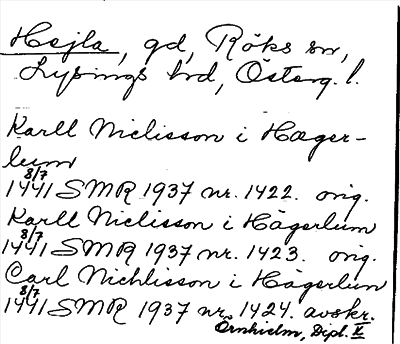 Hejla, gd, Röks sn,
Lysings hd, Österg. l.
Karll Niclisson i Hæger-
lum
8/7
1441 SMR 1937 nr. 1422. orig.
Karll Niclisson i Hägerlum
8/7
1441 SMR 1937 nr. 1423. orig.
Carl Nichlisson i Hägerlum
8/7
1441 SMR 1937 nr. 1424. avskr.
Örnhielm, Dipl. V